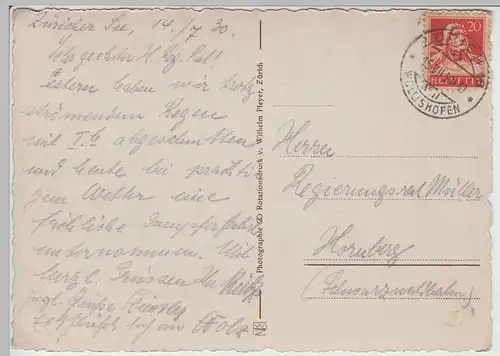 Züricher See, 14./7 30.
Sehr geehrter H. Reg. Rat!
Gestern haben wir trotz
strömendem Regen
mit Ib abgeschnitten
und heute bei prachti-
gem Wetter eine
fröhliche Dampferfahrt
unternommen. Mit
herzl. Grüssen Ihr
schließt sich an
Photographie & Rotationsdruck v. Wilhelm Pleyer, Zürich
20
HELVETIA
WOLLISHOFEN
Herrn
Regierungsrat Müller
Hornberg
(Schwarzwaldbahn)